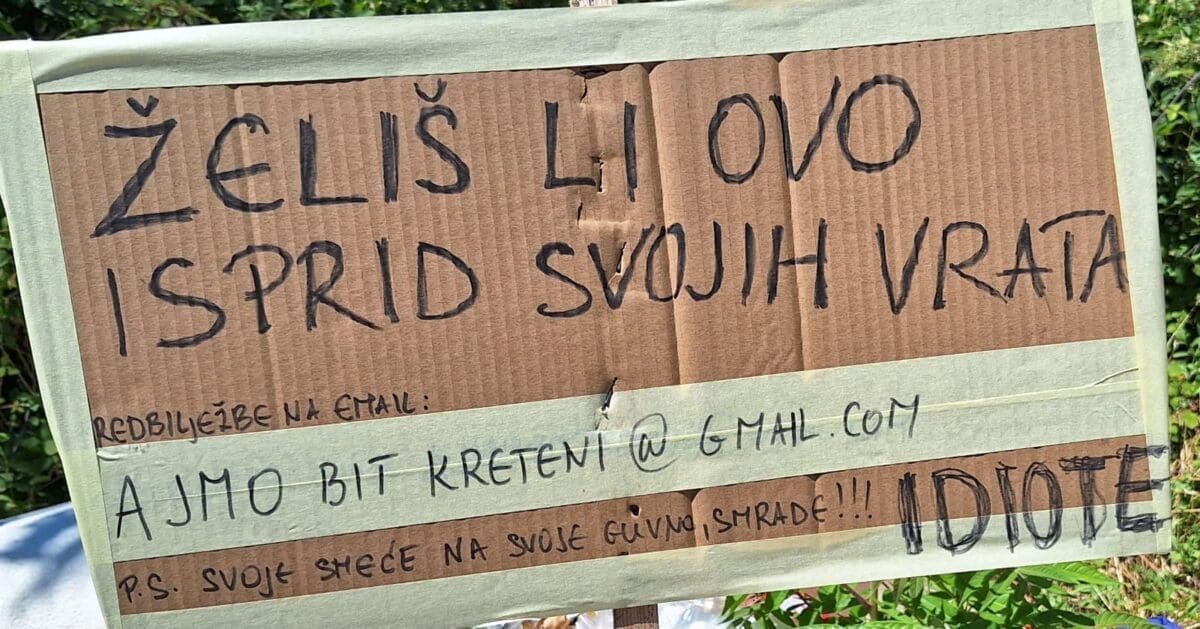 ŽELIŠ LI OVO
ISPRID SVOJIH VRATA
REDBILJEŽBE NA EMAIL:
AJMO BIT KRETENI@GMAIL.COM
P.S. SVOJE SMEĆE NA SVOJE GUVNO, SMRADE!!! IDIOTE